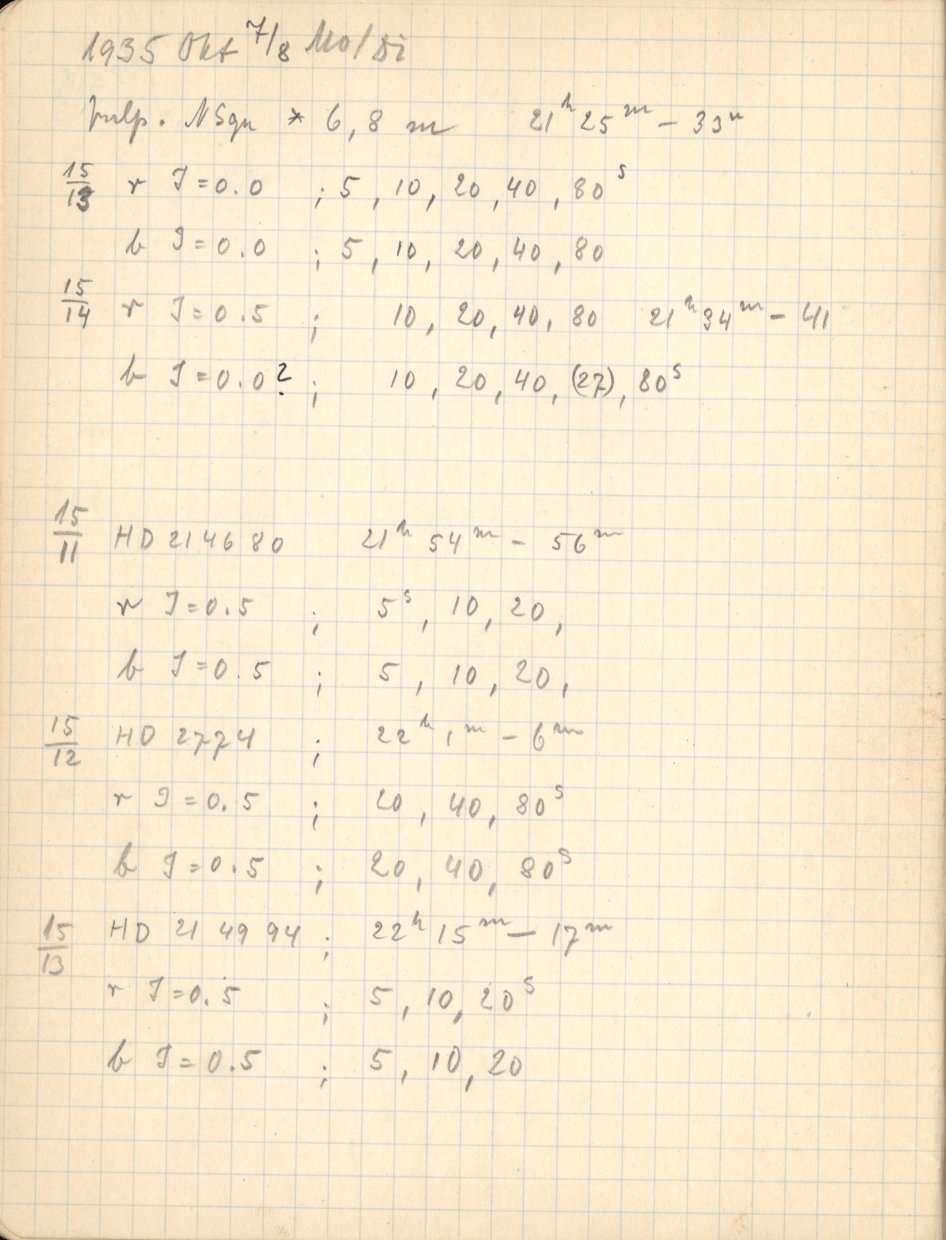 1935 Okt 7/8 Mo/Di
* 6,8 m 21h 25m – 33m
15/13 r I=0.0 ; 5, 10, 20, 40, 80s
b I=0.0 ; 5, 10, 20, 40, 80
15/14 r I=0.5 ; 10, 20, 40, 80 21h 34m – 41
b I=0.0? ; 10, 20, 40, (27), 80s
15/11 HD 214680 21h 54m – 56m
r I=0.5 ; 5s, 10, 20,
b I=0.5 ; 5, 10, 20,
15/12 HD 2774 ; 22h 1m – 6m
r I=0.5 ; 20, 40, 80s
b I=0.5 ; 20, 40, 80s
15/13 HD 214994 ; 22h 15m – 17m
r I=0.5 ; 5, 10, 20s
b I=0.5 ; 5, 10, 20